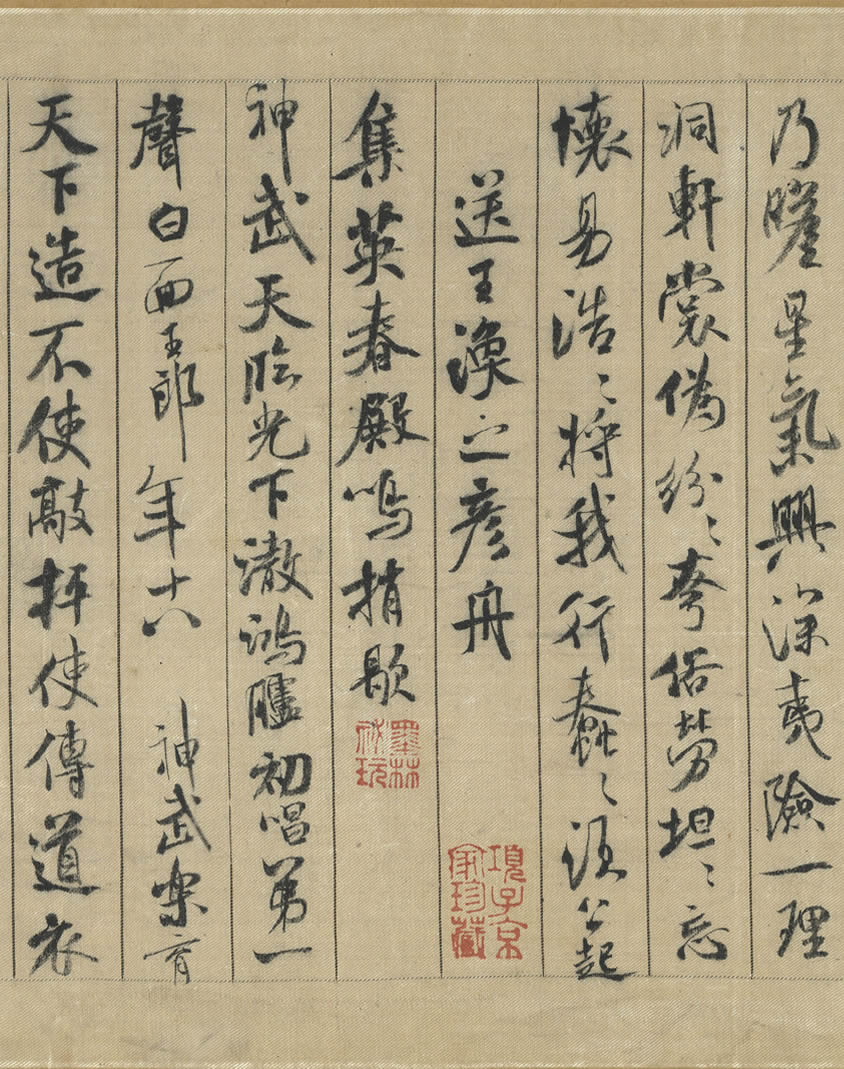 乃曜星氣興深夷險一理
洞軒裳偽紛〻夸俗勞坦〻忘
懷易浩〻將我行蠢〻須公起
送王渙之彥舟
集英春殿鳴捎歇
神武天臨光下澈鴻臚初唱第一
聲白面王郎年十八神武樂育
天下造不使敲抨使傳道衣
墨林祕玩
項子京家珍藏